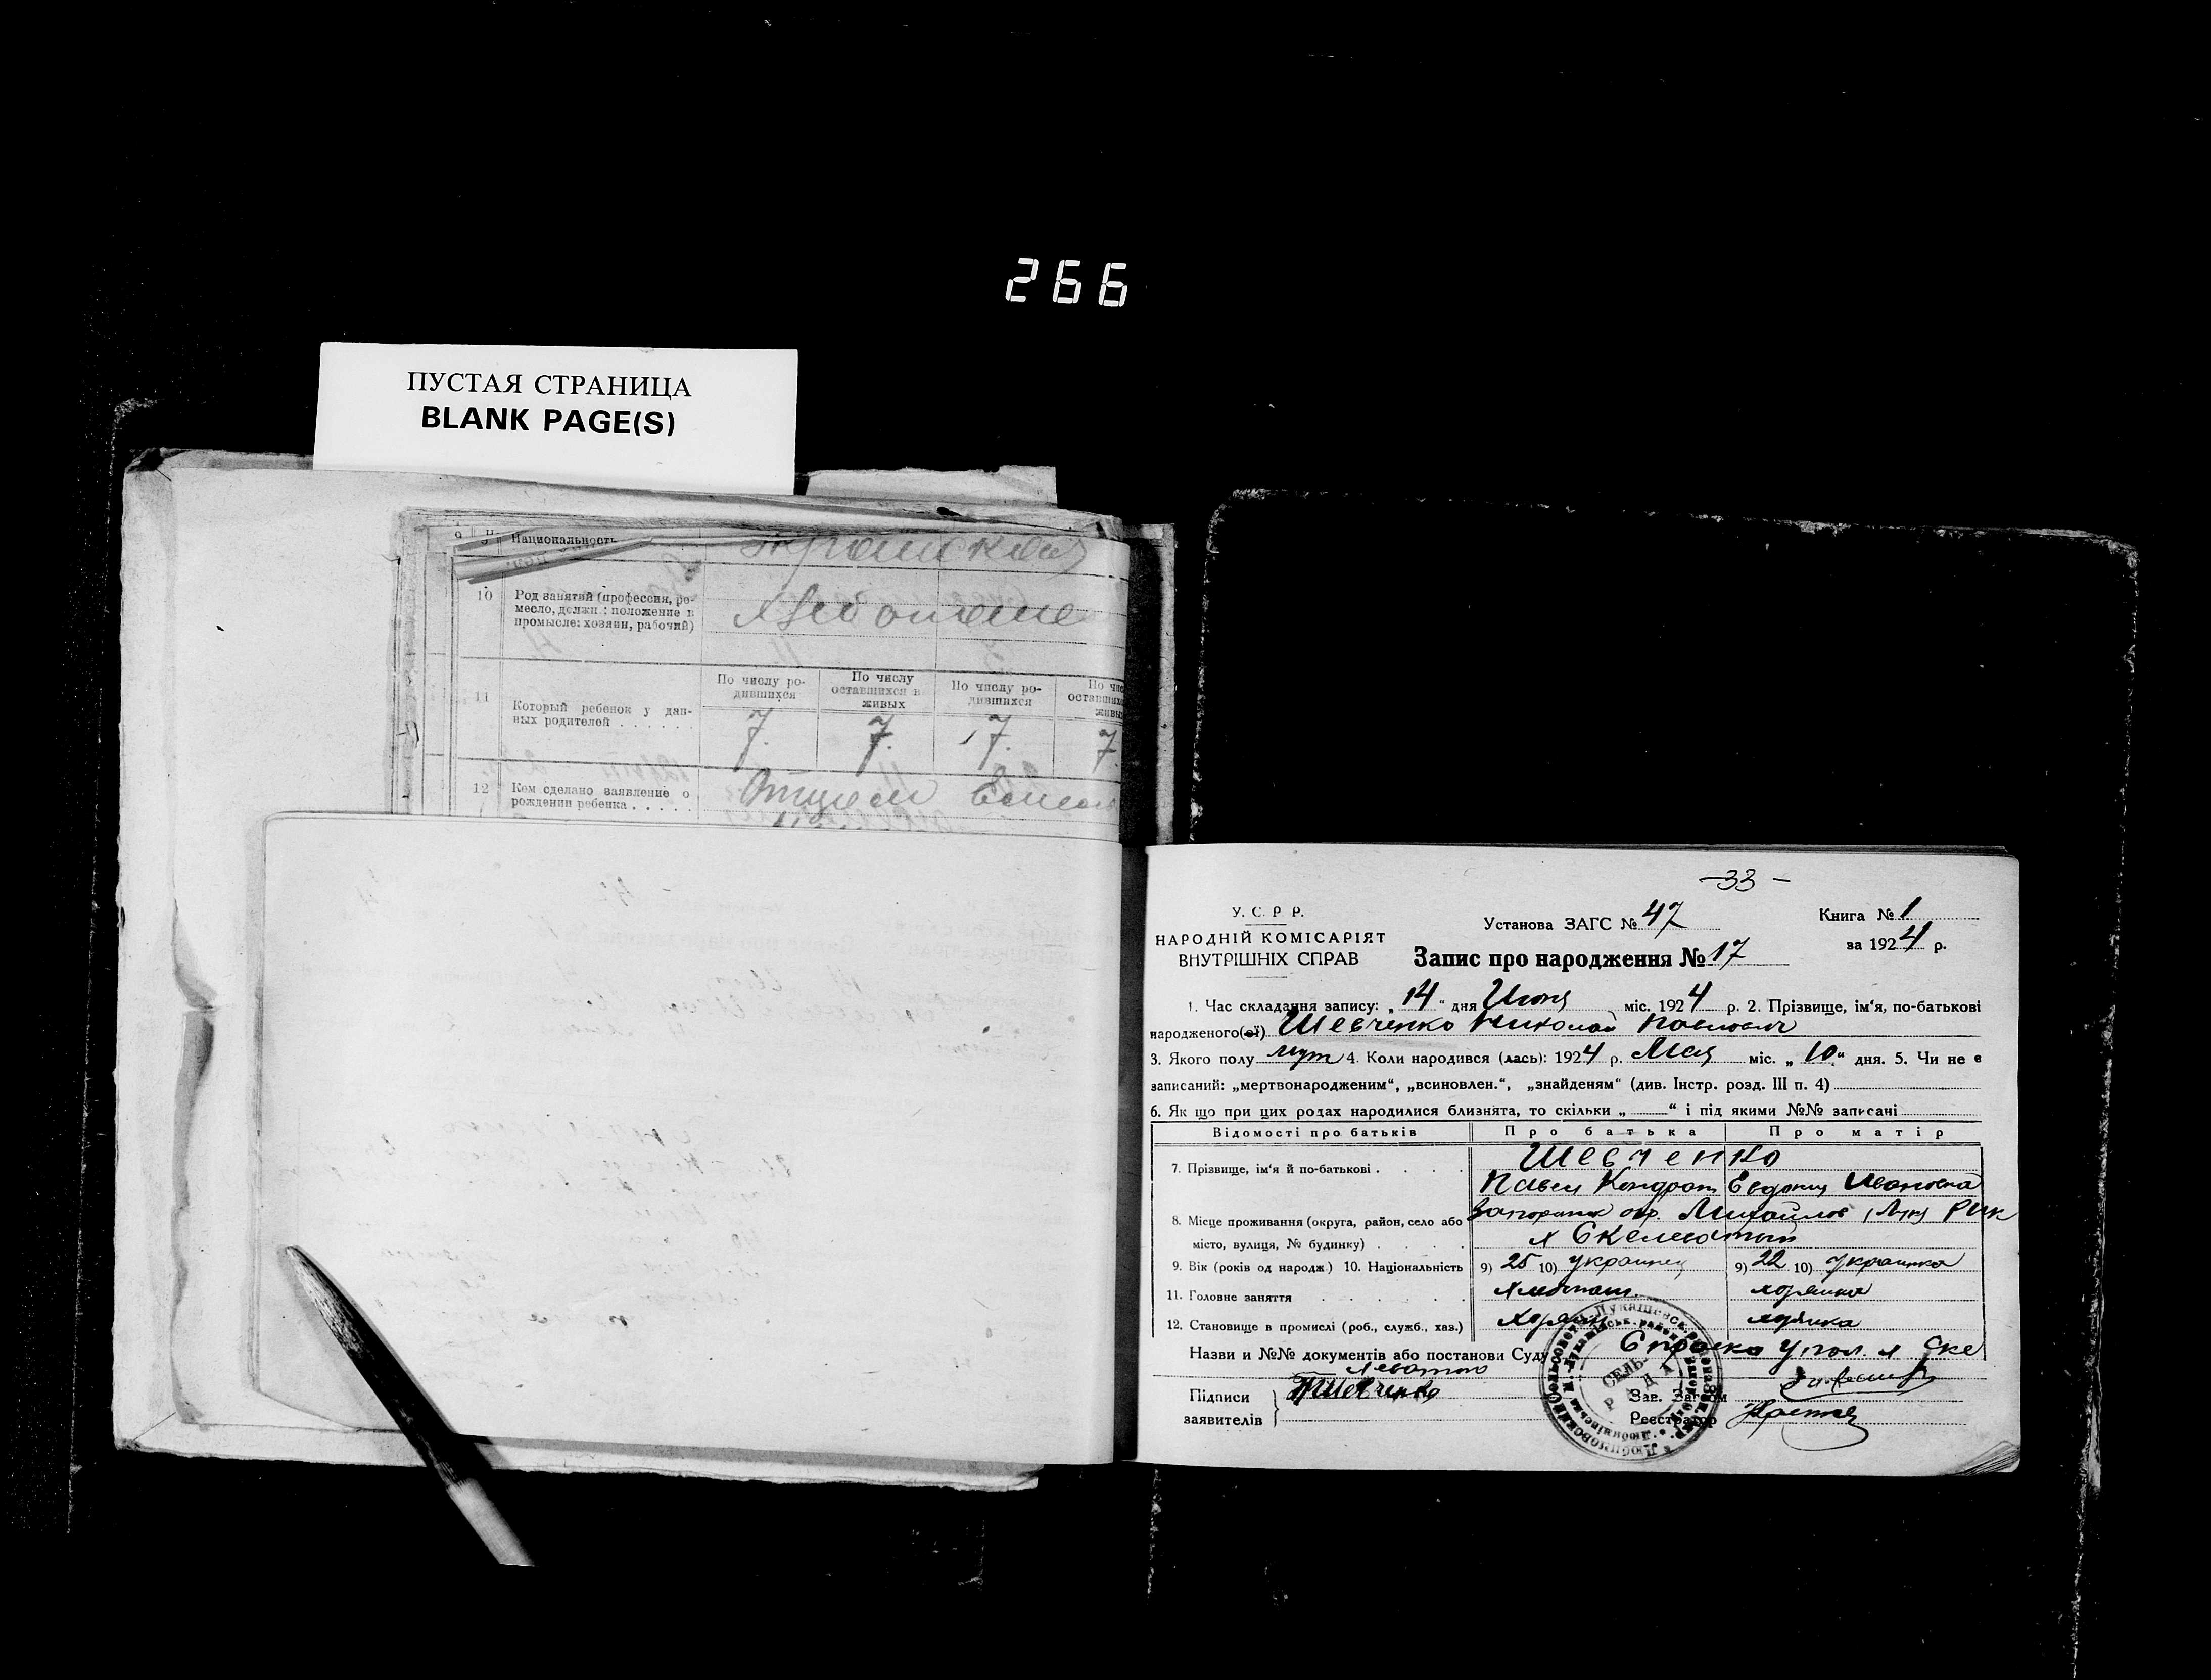 266
ПУСТАЯ СТРАНИЦА
BLANK PAGE(S)
Национальность
10 Род занятий (профессия, ре-
месло, должн.: положение в
промысле: хозяин, рабочий)
По числу ро-
дившихся
По числу
оставшихся в
живых
По числу ро-
дившихся
11 Который ребенок у дан-
ных родителей . . . . . .
7. 7. 7. 7.
12 Кем сделано заявление о
рождении ребенка . . . . .
Отцом
-33-
У. С. Р. Р.
НАРОДНІЙ КОМІСАРІЯТ
ВНУТРІШНІХ СПРАВ
Установа ЗАГС № 47
Книга № 1
за 1924 р.
Запис про народження № 17
1. Час складання запису: „14“ дня Июня міс. 1924 р. 2. Прізвище, ім‘я, по-батькові
народженого(ої) Шевченко Николай Павлович
3. Якого полу муж 4. Коли народився (лась): 1924 р. Мая міс. „10“ дня. 5. Чи не є
записаний: „мертвонародженим“, „всиновлен.“, „знайденям“ (див. Інстр. розд. III п. 4)
6. Як що при цих родах народилися близнята, то скільки „ “ і під якими №№ записані
Відомості про батьків Про батька Про матір
7. Прізвище, ім‘я й по-батькові . . . . Шевченко
Павел Кондрат Евдокия Ивановна
8. Місце проживання (округа, район, село або
місто, вулиця, № будинку) . . . .
Запорожск окр. Михайлов РИК
х Скелеватый
9. Вік (років од народж.) 10. Національність 9) 25 10) украинец 9) 22 10) украинка
11. Головне заняття . . . . .
12. Становище в промислі (роб., служб., хаз.)
Назви и №№ документів або постанови Суду Справка упол. х Ске
леватого
Підписи
заявителів
ПШевченко
Зав. Загсом
Реєстратор
СЕЛЬ-
РАДА